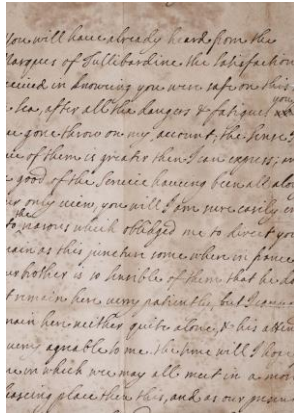 You will have already heard from the
Marques of Tullibardine the Satisfaction
received in knowing you were safe on this
sea, after all the dangers & fatigues you
have gone throw on my account, the sense I
have of them is greater then I can express; and
good of the Service haveing been all along
our only view, you will I am sure easily en
to the reasons which obliged me to direct you
main as this juncture some where in france
brother is so sensible of them that he do
t remain here very patiently, but I cannot
main here neither quite alone, & his atten
very agreable to me. the time will I hope
in which we may all meet in a mo
pleasing place then this, and as our presen